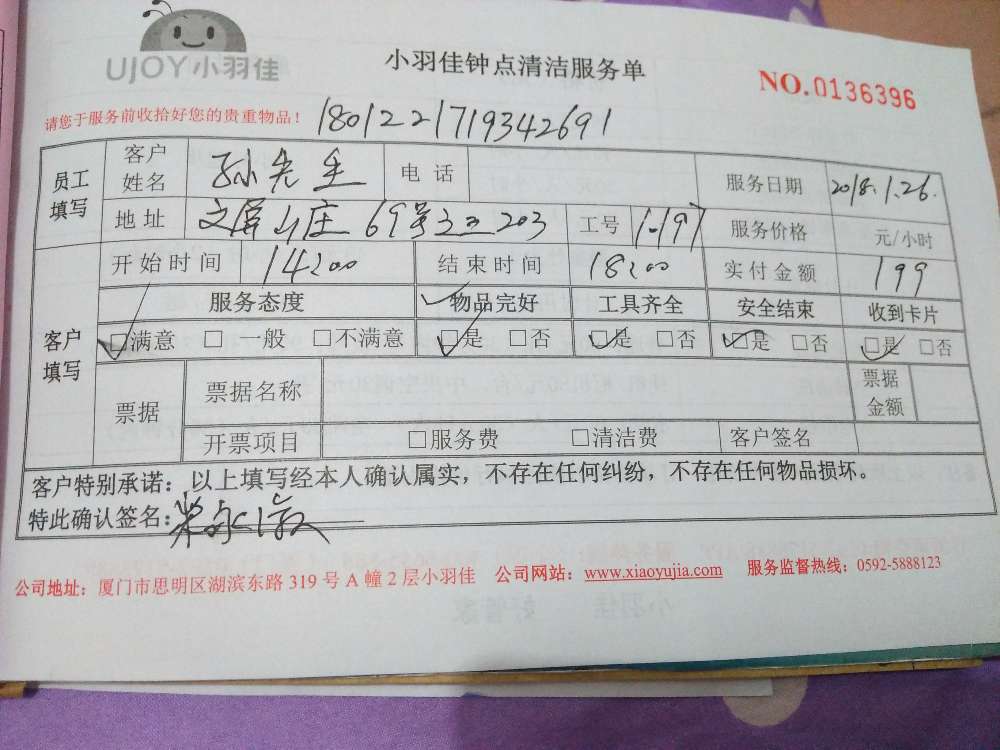 UJOY小羽佳
小羽佳钟点清洁服务单
NO.0136396
请您于服务前收拾好您的贵重物品！ 1801221719342691
员工填写 客户姓名 孙先生 电话 服务日期 2018.1.26.
地址 文屏山庄 69号之三203 工号 1-197 服务价格 元/小时
客户填写 开始时间 14:00 结束时间 18:00 实付金额 199
服务态度 物品完好 工具齐全 安全结束 收到卡片
□满意 □一般 □不满意 □是 □否 □是 □否 □是 □否 □是 □否
票据 票据名称 票据金额
开票项目 □服务费 □清洁费 客户签名
客户特别承诺：以上填写经本人确认属实，不存在任何纠纷，不存在任何物品损坏。
特此确认签名：
公司地址：厦门市思明区湖滨东路 319 号 A 幢 2 层小羽佳 公司网站：www.xiaoyujia.com 服务监督热线：0592-5888123